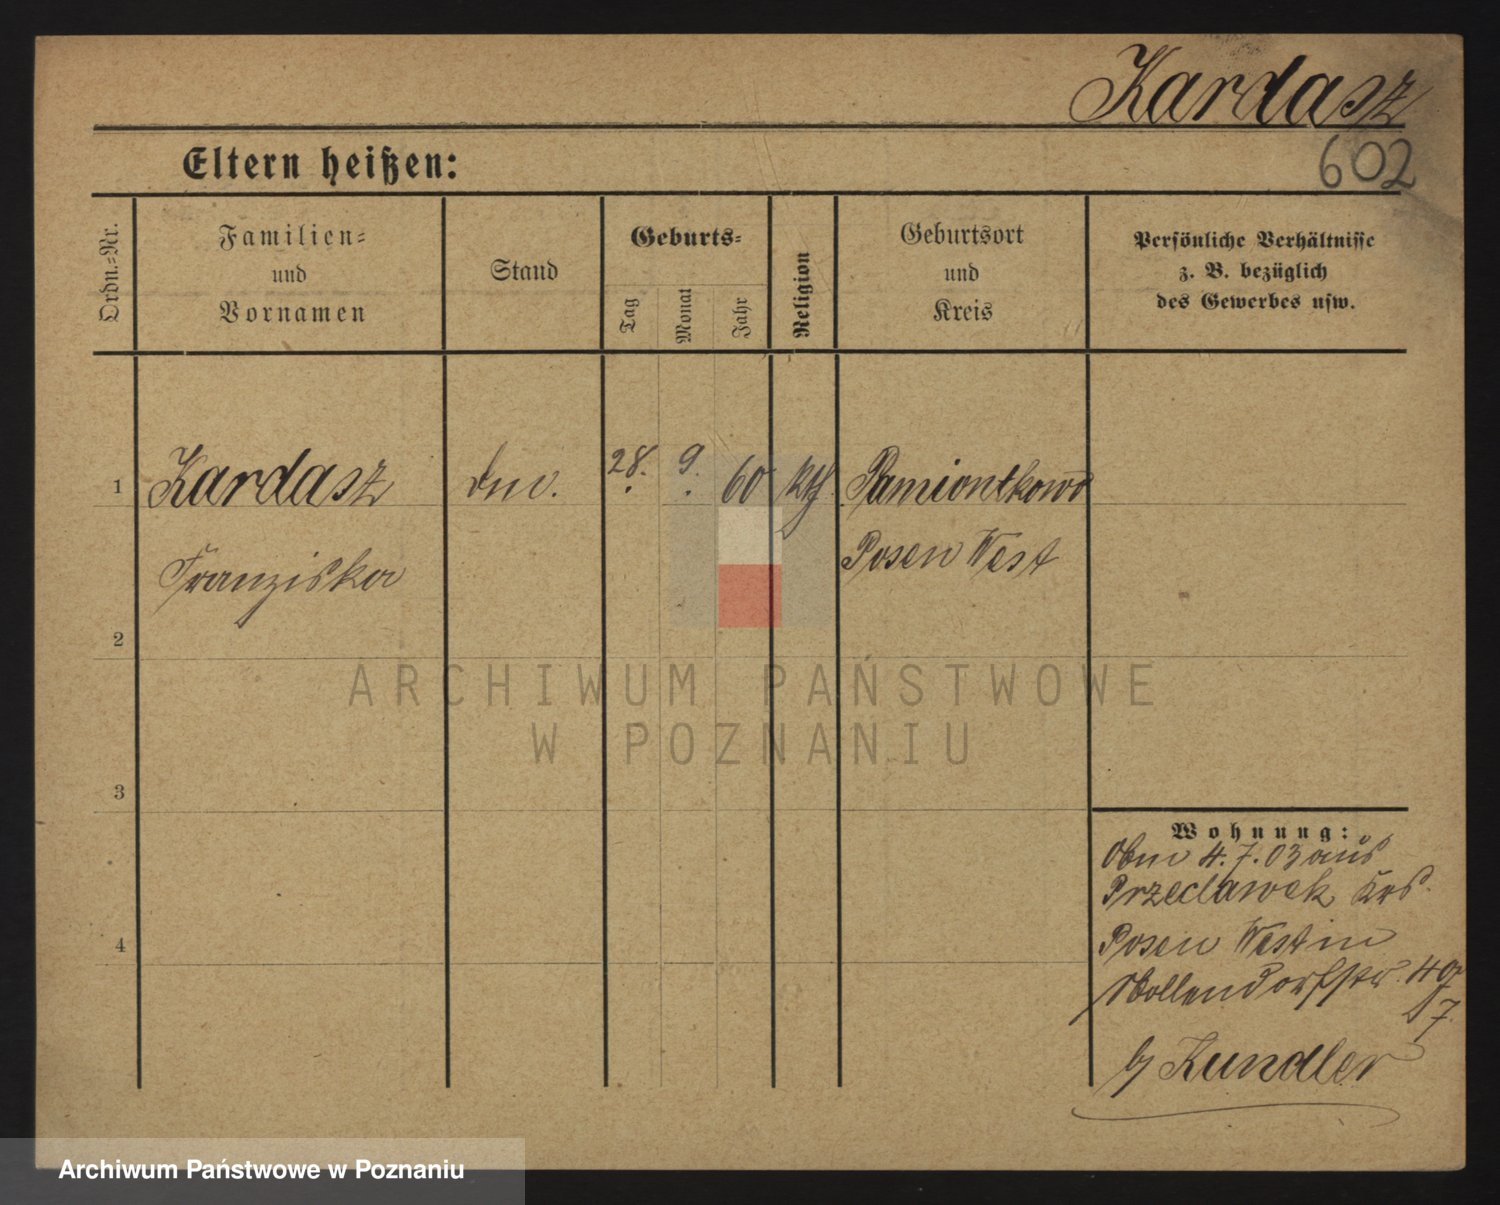 Kardasz
602
Eltern heißen:
Ordn.=Nr.
Familien=
und
Vornamen
Stand
Geburts=
Tag
Monat
Jahr
Religion
Geburtsort
und
Kreis
Persönliche Verhältnisse
z. B. bezüglich
des Gewerbes usw.
1 Kardasz 28. 9. 60 kth. Pamiontkowo
Franziska Posen West
2
3
4
Wohnung:
4. 7. 03 aus
Przeclawek Krs.
Posen West in
49
7.
b/ Kundler
ARCHIWUM PAŃSTWOWE
W POZNANIU
Archiwum Państwowe w Poznaniu